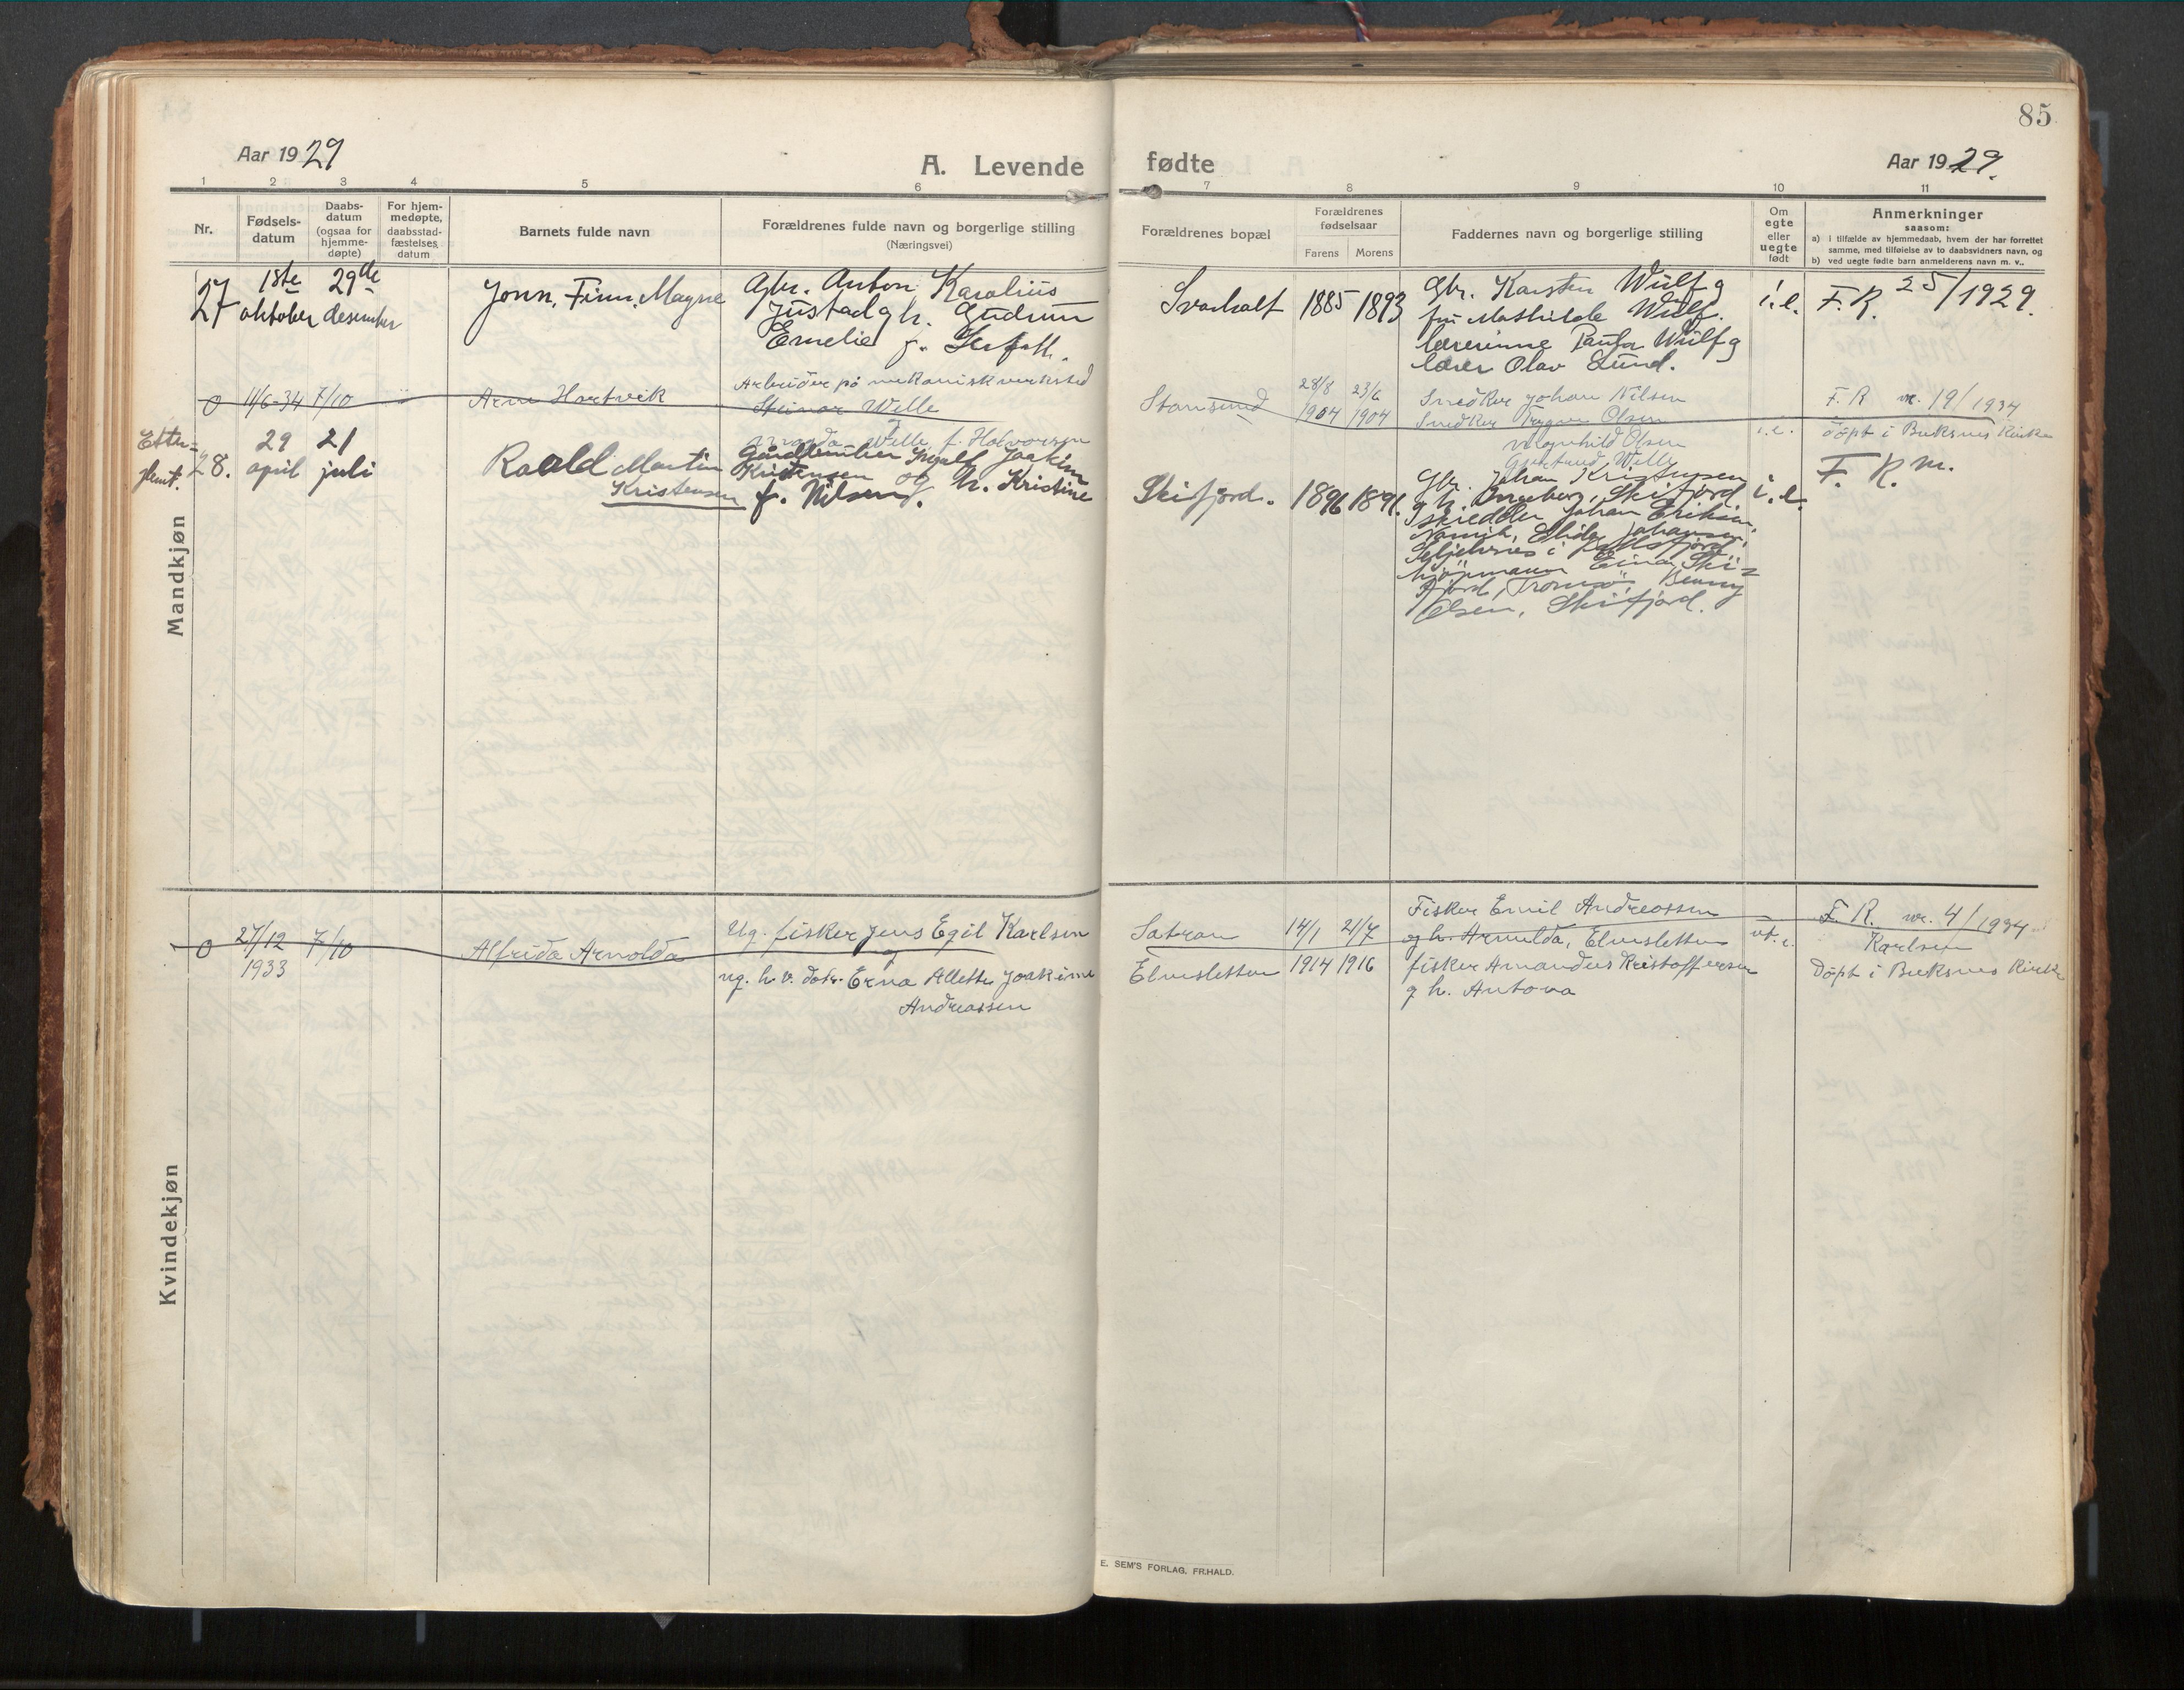 85
Aar 1929
A. Levende fødte
Aar 1929.
1 2 3 4 5 6 7 8 9 10 11
Nr.
Fødsels-
datum
Daabs-
datum
(ogsaa for
hjemme-
døpte)
For hjem-
medøpte,
daabsstad-
fæstelses
datum
Barnets fulde navn
Forældrenes fulde navn og borgerlige stilling
(Næringsvei)
Forældrenes bopæl
Forældrenes
fødselsaar
Farens Morens
Faddernes navn og borgerlige stilling
Om
egte
eller
uegte
født
Anmerkninger
saasom:
a) i tilfælde av hjemmedaab, hvem der har forrettet
samme, med tilføielse av to daabsvidners navn, og
b) ved uegte fødte barn anmelderens navn m. v..
Mandkjøn
27
18te
oktober
29de
desember
Jonn. Finn. Magne
Gbr. Anton Karolius
Justad g h. Gudrun
Emelie f.
Svarholt
1885 1893
Gbr. Karsten Wulf g
fru Mathilde Wulf.
lærerinne Paula Wulf g
lærer Olav Lund.
i.e.
F. R. 25/1929.
0
11/6-34 7/10
Arne Hartvik
Arbeider på mekanisk verksted
Steinar Welle
Welle f. Halvorsen
Stamsund
28/8 23/6
1904 1904
Snedker Johan Nilsen
Snedker Trygve Olsen
Magnhild Olsen
Gjertrud Welle
i.e.
F. R nr. 19/1934
döpt i Buksnes Kirke
Etter-
glemt.
28.
29
april
21
juli
Roald Martin
Kristensen
Gårdbruker Ingolf Joakim
Kristensen og h. Kristine
f. Nilsen.
Skifjord.
1896 1891.
Gbr. Johan Kristensen
g h. Ingeborg, Skifjord
skredder Johan Eriksen,
Johansen,
i
kjöpmann Einar Ski-
fjord, Tromsö, Benny
Olsen, Skifjord.
i.e.
F. R. m.
Kvindekjøn
0
27/12
1933
7/10
Alfrida Arnolda
Ug. fisker Jens Egil Karlsen
og
ug. h. v. datr. Erna Allette Joakime
Andreassen
Satran
Elvesletten
14/1 21/7
1914 1916
Fisker Emil Andreassen
og h. Arnulda, Elvesletten
fisker Amandus Kristoffersen
g h. Antona
ut. e.
F. R. nr. 4/1934
Karlsen
Döpt i Buksnes Kirke
E. SEM'S FORLAG, FR.HALD.